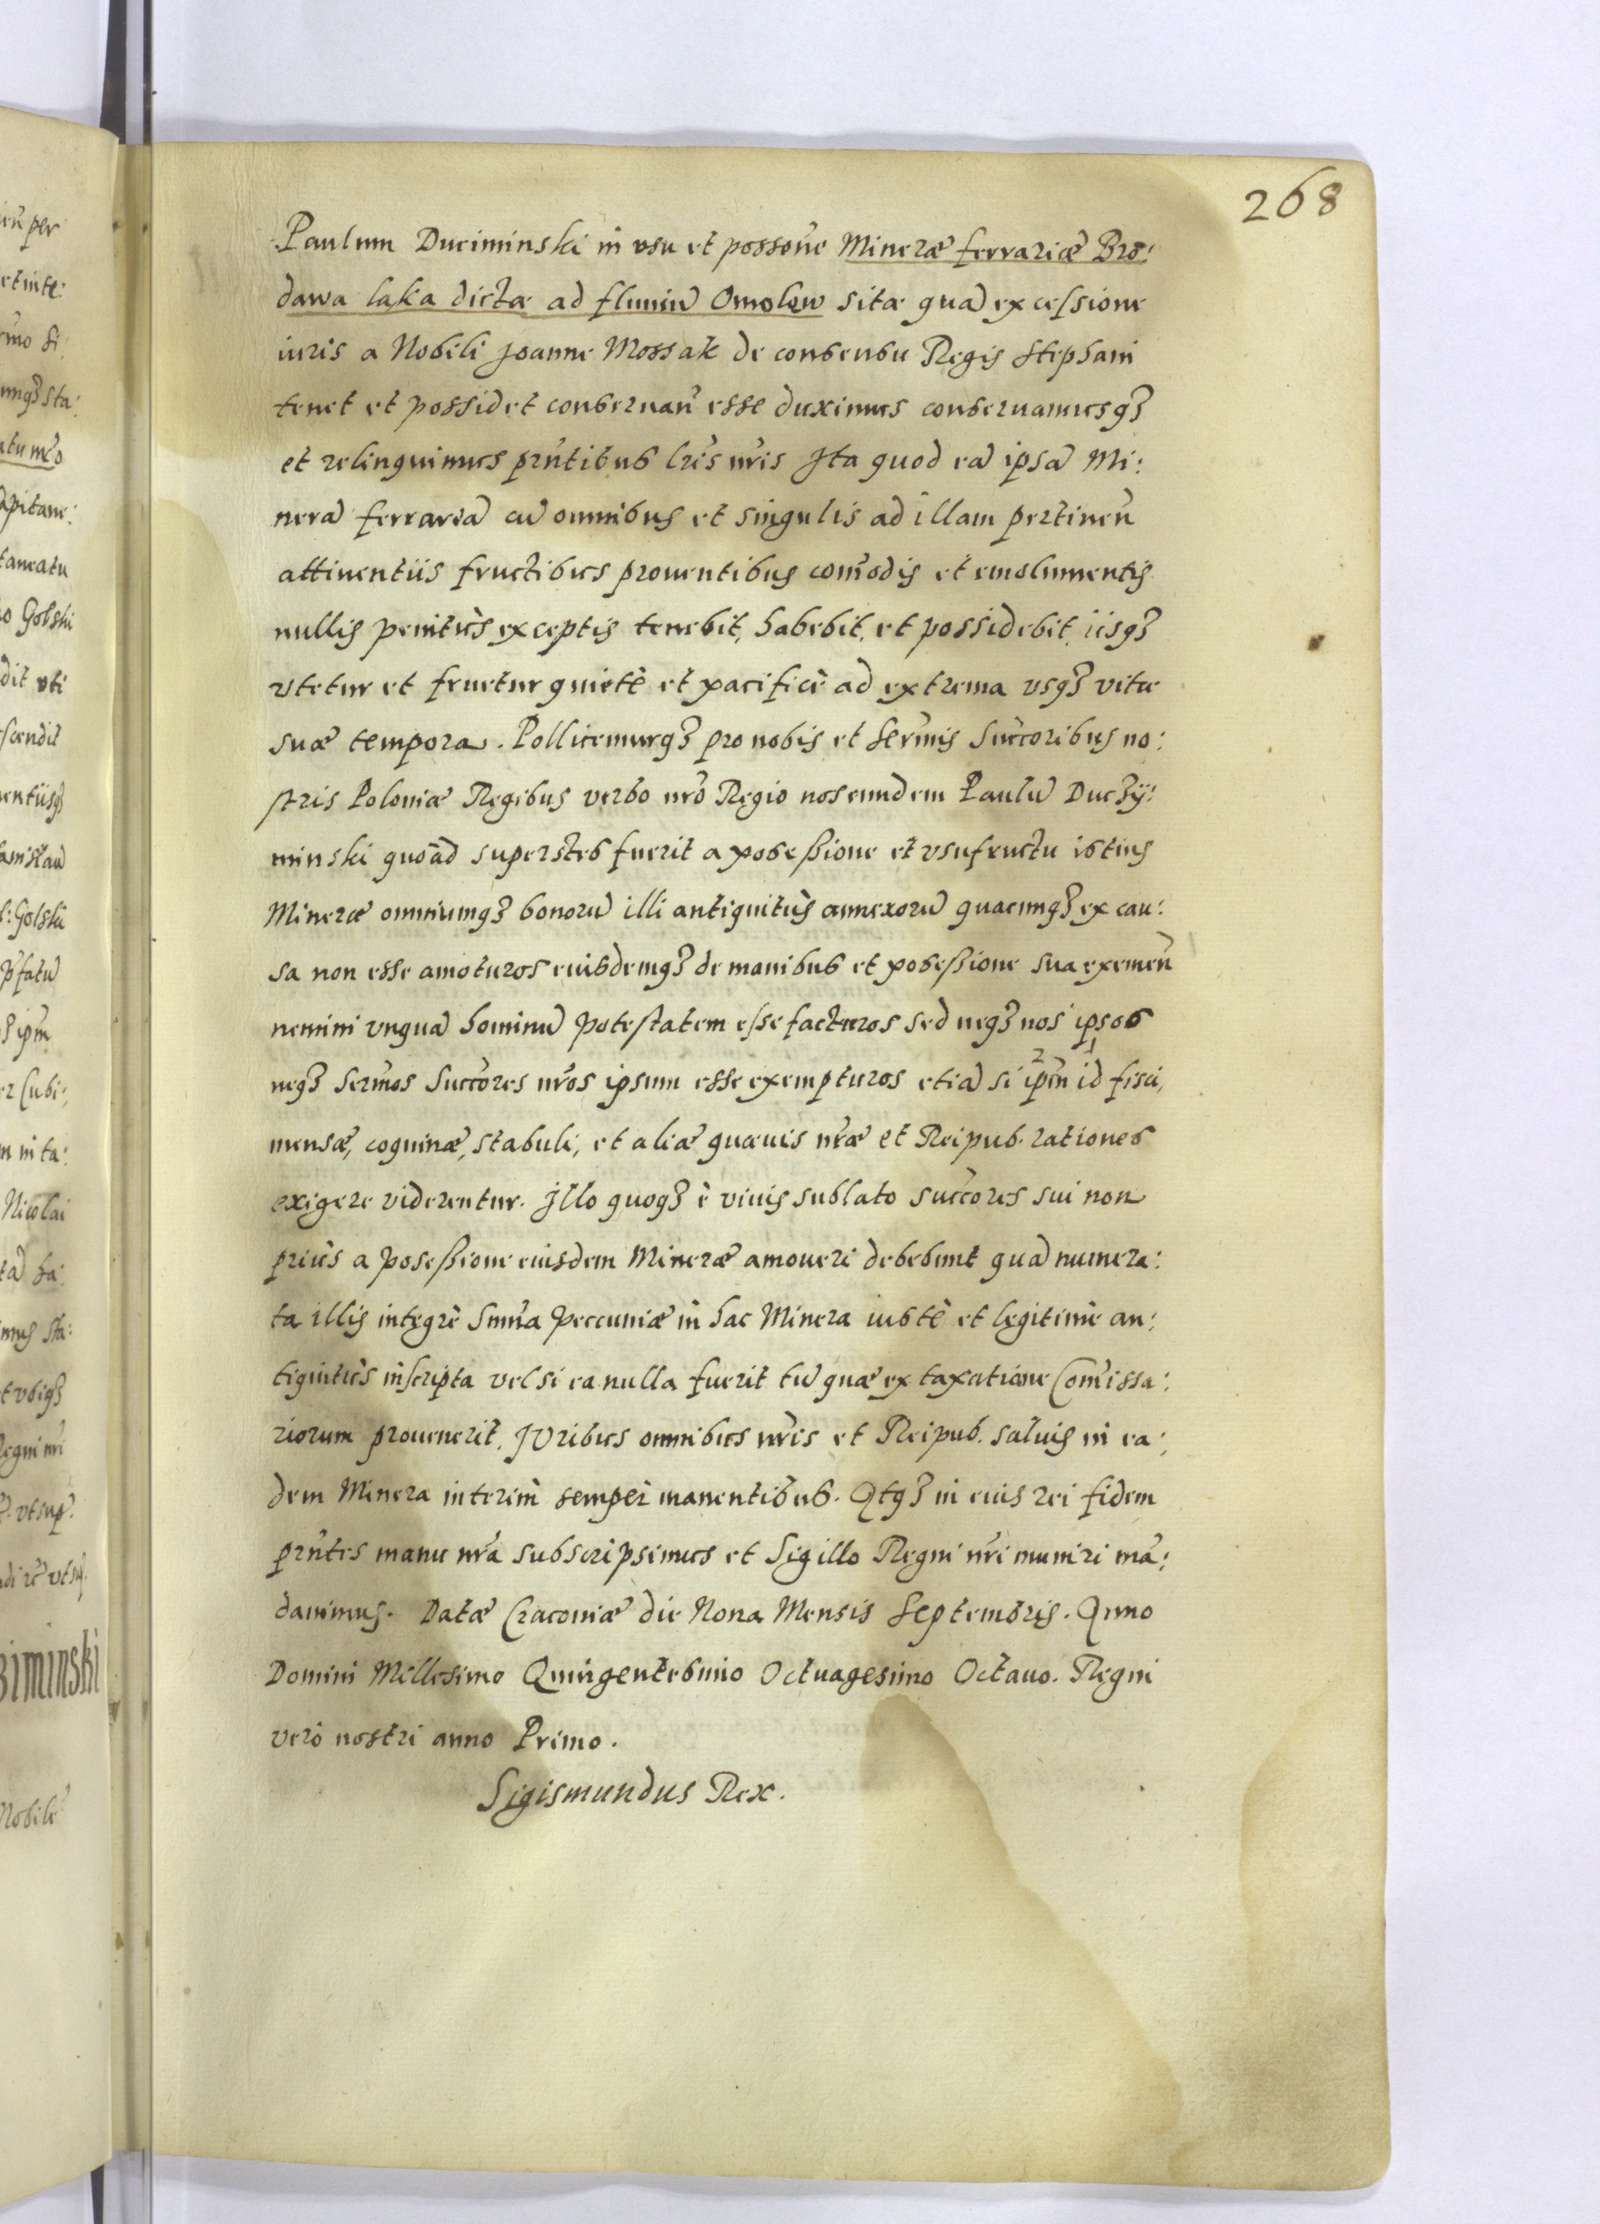 268
Paulum Duciminski in vsu et possone Mineræ ferrariæ Bro:
dawa laka dictæ ad fluuiũ Omolew sitæ quã ex cessione
iuris a Nobili Joanne Mossak de consensu Regis Stephani
tenet et possidet conseruan̄ esse duximus conseruamusqȝ
et relinquimus pr̃ntibus lr̃is nr̃is Ita quod eã ipsã Mi:
nerã ferrareã cũ omnibus et singulis ad illam pertinen̄
attinentiis fructibus prouentibus com̃odis et emolumentis
nullis penitùs exceptis tenebit, habebit, et possidebit, iisqȝ
vtetur et fruetur quietè et pacificè ad extrema vsqȝ vitæ
suæ tempora. Pollicemurqȝ pro nobis et Serm̃is Succ̃oribus no:
stris Poloniæ Regibus verbo nr̃o Regio nos eundem Paulũ Duczÿ:
minski quoàd superstes fuerit a posessione et vsufructu istius
Mineræ omniumqȝ bonorũ illi antiquitùs annexorũ quacunqȝ ex cau:
sa non esse amoturos eiusdemqȝ de manibus et posessione sua eximen̄
nemini vnquã hominũ potestatem esse facturos sed neqȝ nos ipsos
neqȝ Serm̃os Succ̃ores nr̃os ipsum esse exempturos etiã si ip̃m id fisci,
2 1
mensæ, coquinæ, stabuli, et aliæ quæuis nr̃æ et Reipub. rationes
exigere viderentur. Illo quoqȝ è viuis sublato succ̃ores sui non
priùs a posessione eiusdem Mineræ amoueri debebunt quã numera:
ta illis integrè Sum̃a peccuniæ in hac Minera iustè et legitimè an:
tiquitùs inscripta vel si ea nulla fuerit tũ quæ ex taxatione Com̃issa:
riorum prouenerit. IVribus omnibus nr̃is et Reipub. saluis in ea:
dem Minera interim semper manentibus. Qtqȝ in eius rei fidem
pr̃ntes manu nr̃a subscripsimus et Sigillo Regni nr̃i muniri mã:
dauimus. Datæ Cracouiæ die Nona Mensis Septembris. Anno
Domini Millesimo Quingentesimo Octuagesimo Octauo. Regni
verò nostri anno Primo.
Sigismundus Rex.